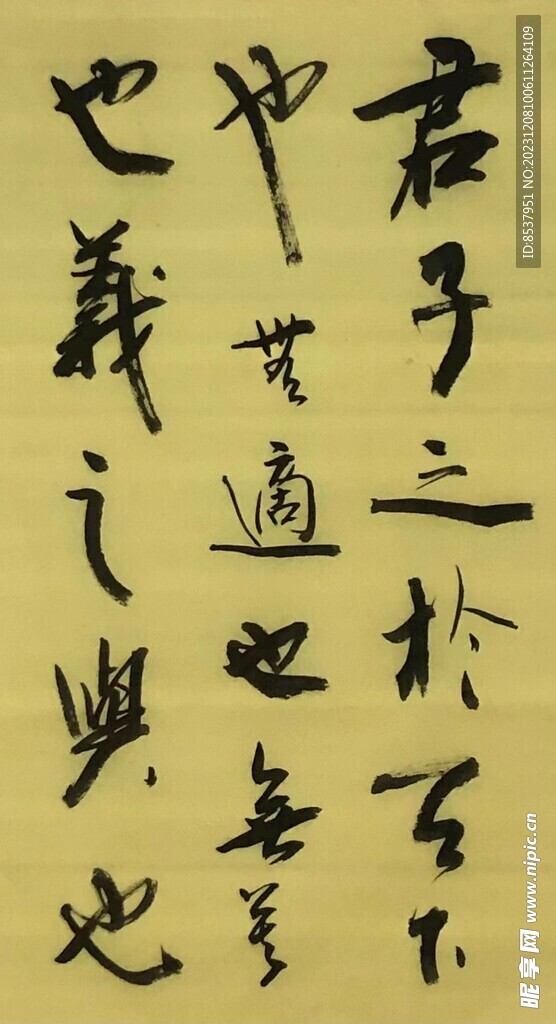 君子之於天下
也無適也無莫
也義之與也
ID:8537951 NO:20231208100611264109
昵享网 www.nipic.cn